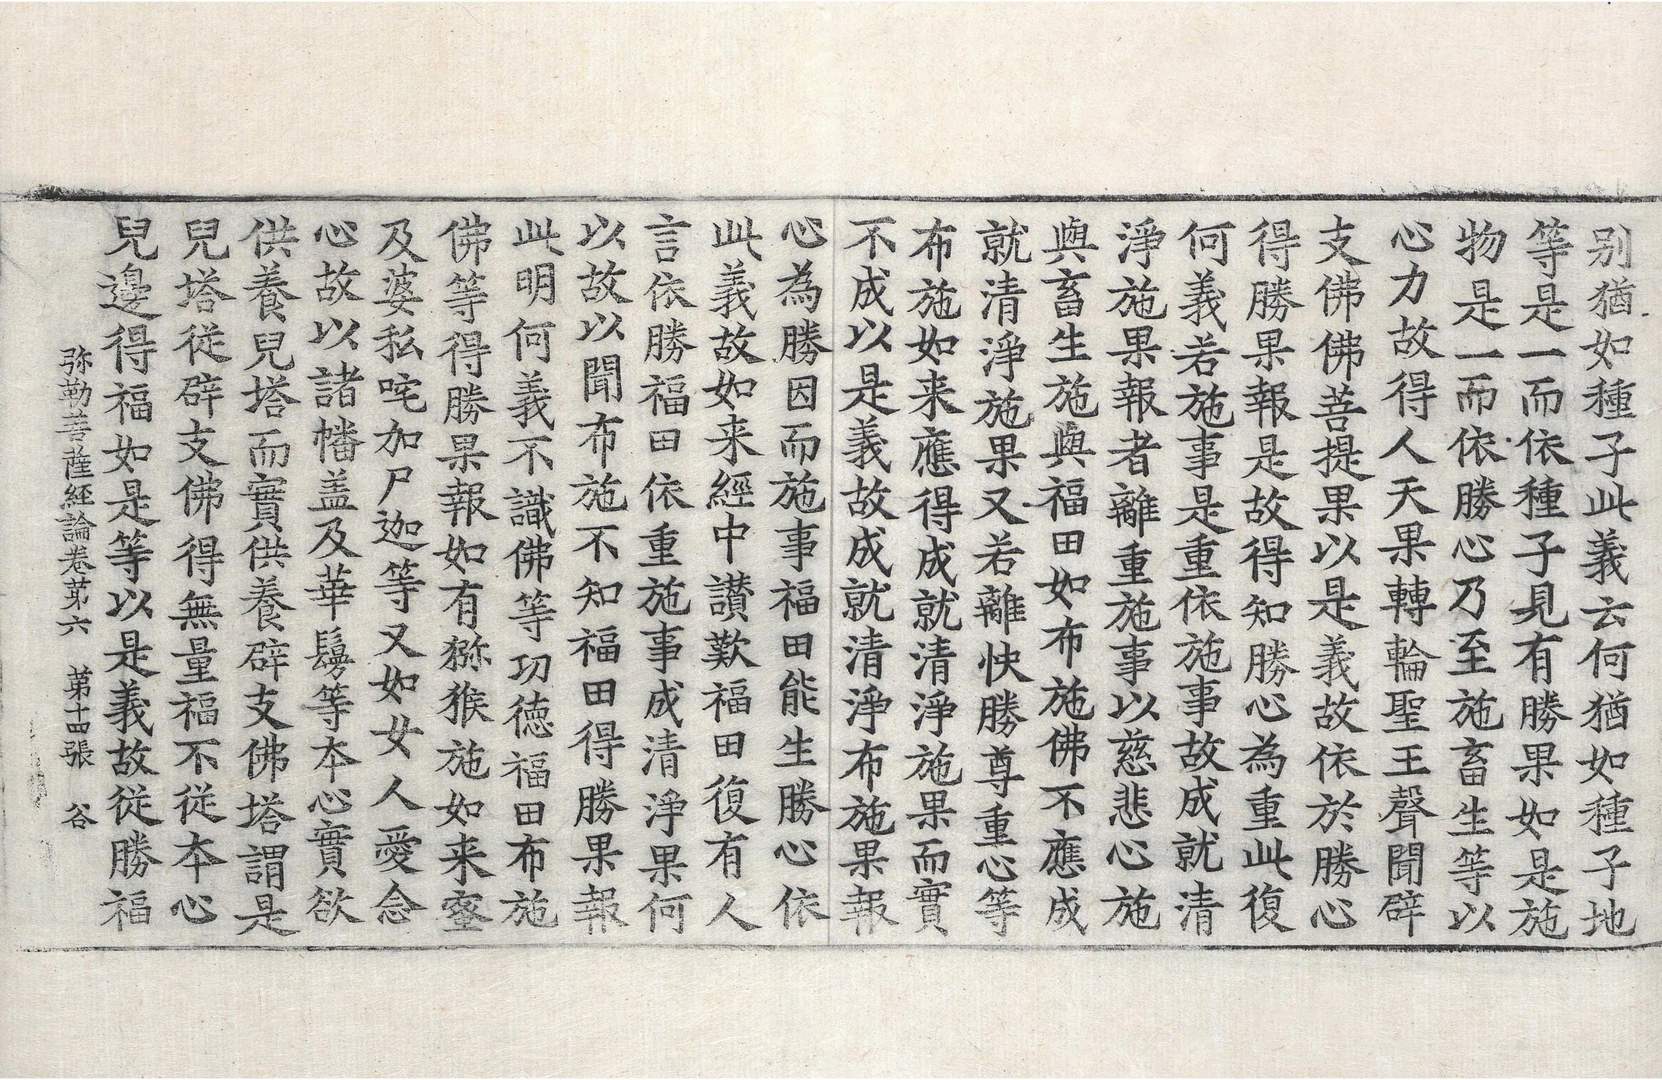 别猶如種子此義云何猶如種子地
等是一而依種子見有勝果如是施
物是一而依勝心乃至施畜生等以
心力故得人天果轉輪聖王聲聞辟
支佛佛菩提果以是義故依於勝心
得勝果報是故得知勝心為重此復
何義若施事是重依施事故成就清
淨施果報者離重施事以慈悲心施
與畜生施與福田如布施佛不應成
就清淨施果又若離快勝尊重心等
布施如来應得成就清淨施果而實
不成以是義故成就清淨布施果報
心為勝因而施事福田能生勝心依
此義故如来經中讃歎福田復有人
言依勝福田依重施事成清淨果何
以故以聞布施不知福田得勝果報
此明何義不識佛等功徳福田布施
佛等得勝果報如有猕猴施如来蜜
及婆私咤加尸迦等又如女人愛念
心故以諸幡盖及華鬘等本心實欲
供養兒塔而實供養辟支佛塔謂是
兒塔從辟支佛得無量福不從本心
兒邊得福如是等以是義故從勝福
弥勒菩薩經論卷苐六　第十四張　谷